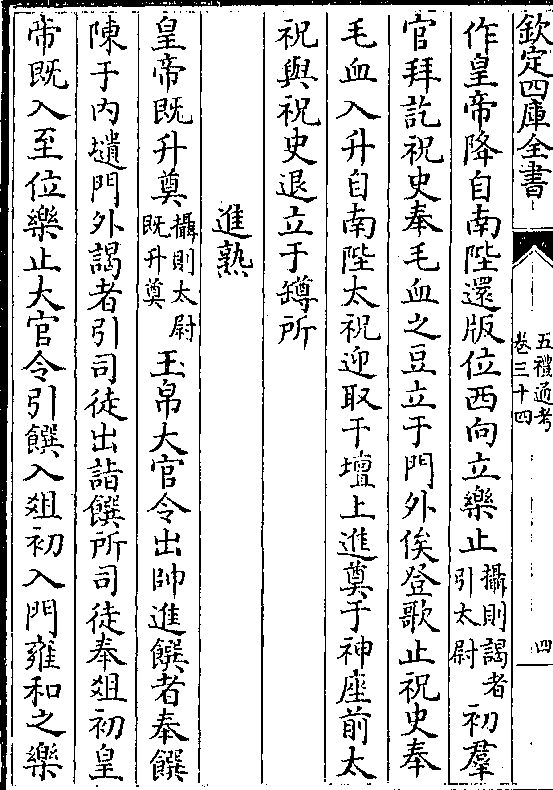 欽定四庫全書
五禮通考
卷三十四
四
作皇帝降自南陛還版位西向立樂止攝則謁者引太尉初羣
官拜訖祝史奉毛血之豆立于門外俟登歌止祝史奉
毛血入升自南陛太祝迎取于壇上進奠于神座前太
祝與祝史退立于罇所
進熟
皇帝既升奠攝則太尉既升奠玉帛大官令出帥進饌者奉饌
陳于內壝門外謁者引司徒出詣饌所司徒奉爼初皇
帝既入至位樂止大官令引饌入爼初入門雍和之樂